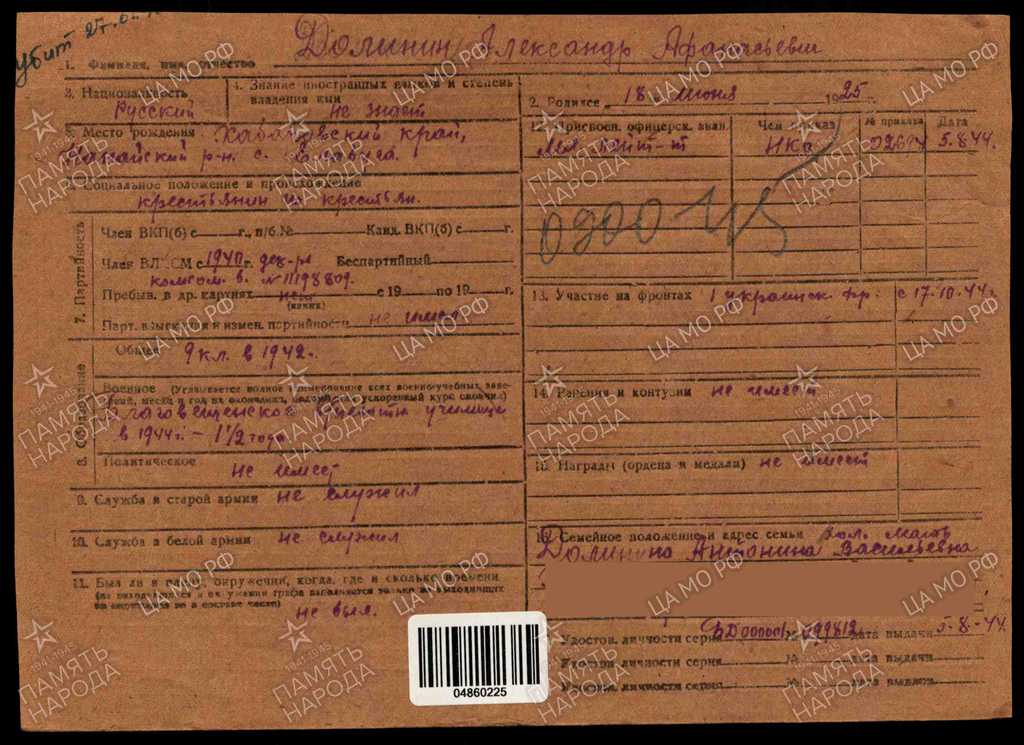 убит 27.
Долинин Александр Афанасьевич
1. Фамилия, имя, отчество
3. Национальность
Русский
4. Знание иностранных языков и степень
владения ими
не знает
2. Родился 18 июня 1925 г.
5. Место рождения Хабаровский край,
р-н. с.
6. Социальное положение и происхождение
крестьянин из крестьян.
12. Присвоен. офицерск. зван.
Чем (приказ)
№ приказа
Дата
Мл. лейт-т
НКО
5.8.44.
0900
7. Партийность
Член ВКП(б) с г., п/б.№ Канд. ВКП(б) с г.
Член ВЛКСМ с 1940 г. Беспартийный
комсом. б. № 11198809.
Пребыв. в др. партиях нет с 19 по 19 г.
(каких)
Парт. взыскания и измен. партийности не имел
13. Участие на фронтах 1 украинск. фр. с 17.10.44г
8. Образование
Общее 9 кл. в 1942г.
Военное (Указывается полное наименование всех военно-учебных заве-
дений, место и год их окончания, полный или ускоренный курс окончил)
Благовещенское училище
в 1944г. – 1 1/2 года
Политическое
не имеет
14. Ранения и контузии не имеет
15. Награды (ордена и медали) не имеет
9. Служба в старой армии не служил
10. Служба в белой армии не служил
11. Был ли в плену, окружении, когда, где и сколько времени
не был.
16. Семейное положение и адрес семьи Хол. мать
Долинина Антонина Васильевна
Удостов. личности серия БД 00000 № 099812 дата выдачи 5-8-44.
Удостов. личности серия № дата выдачи
Удостов. личности серия № дата выдачи
04860225
ЦА МО РФ
ПАМЯТЬ
НАРОДА
1941-1945